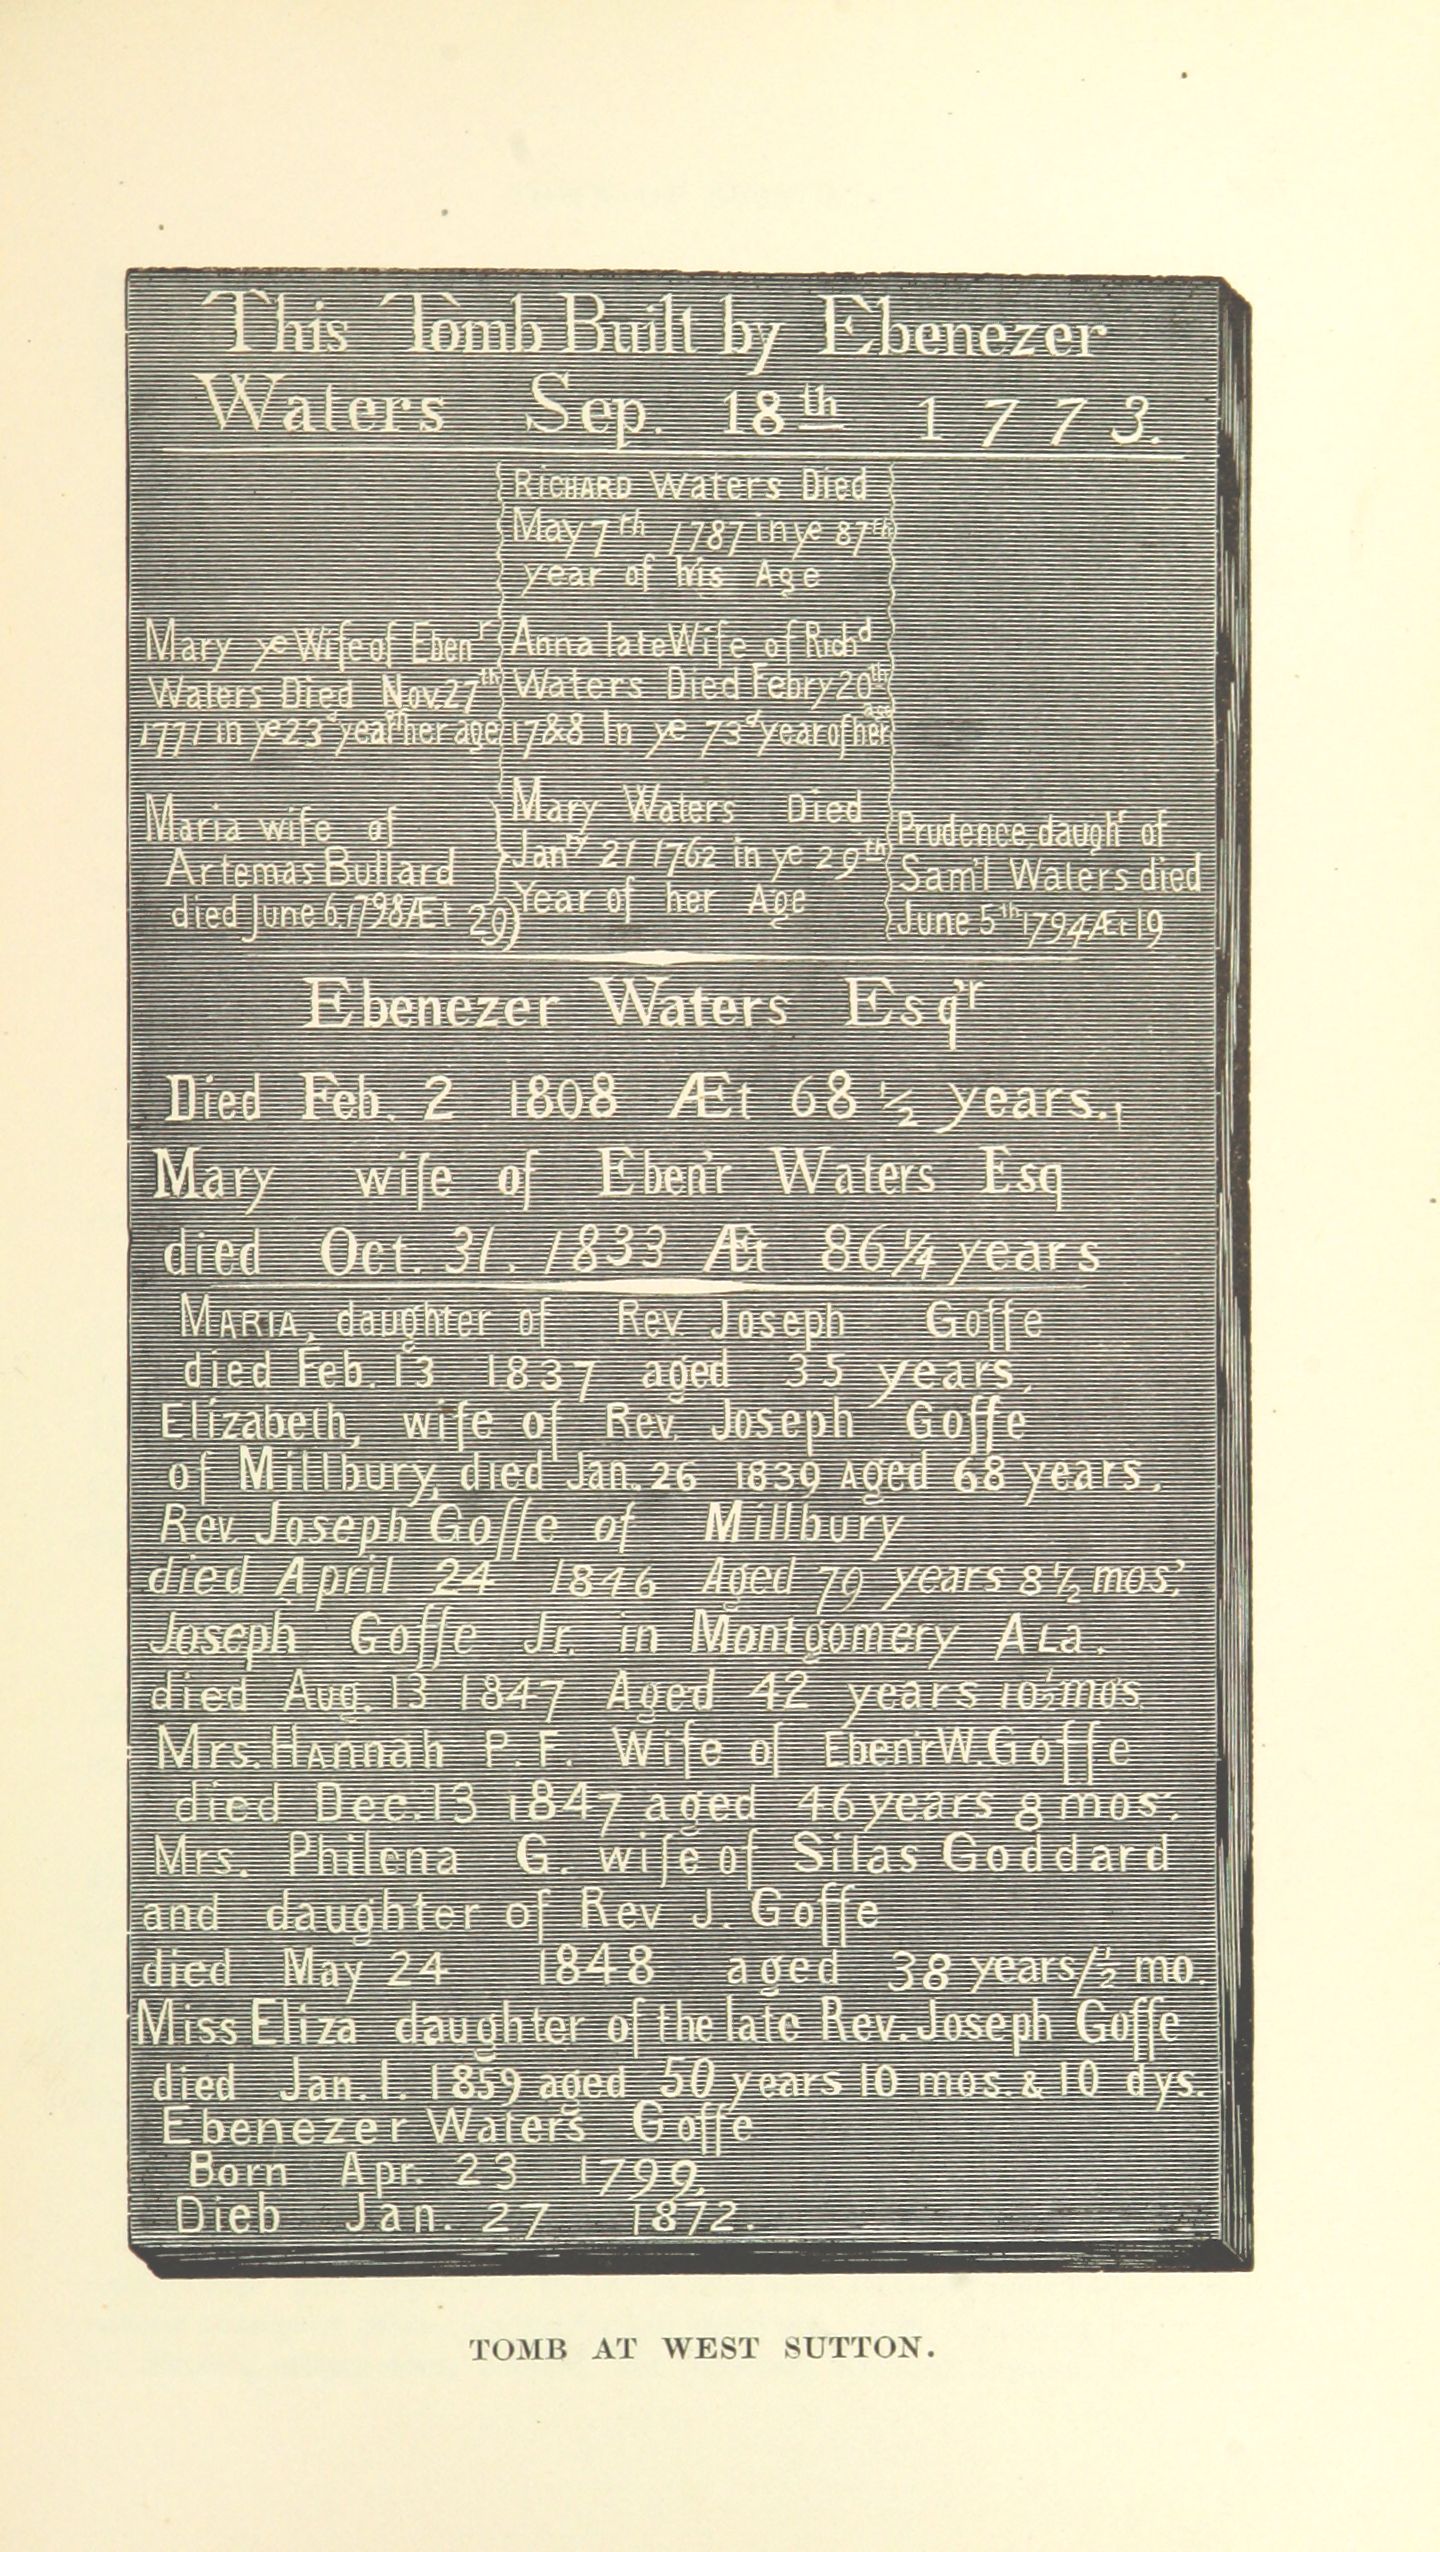 This Tomb Built by Ebenezer
Waters Sep. 18th 1773.
RICHARD Waters Died
May 7th 1787 in ye 87th
year of his Age
Mary ye Wife of Ebenr
Waters Died Nov. 27th
1777 in ye 23d year of her age
Anna late Wife of Richd
Waters Died Febry 20th
1788 In ye 73d year of her age
Maria wife of
Artemas Bullard
died June 6, 1798 Æt 29
Mary Waters Died
Janry 21 1762 in ye 29th
Year of her Age
Prudence, daughr of
Sam'l Waters died
June 5th 1794 Æt 19
Ebenezer Waters Esq'r
Died Feb. 2 1808 Æt 68 ½ years.,
Mary wife of Eben'r Waters Esq
died Oct. 31. 1833 Æt 86 ¼ years
MARIA, daughter of Rev. Joseph Goffe
died Feb. 13 1837 aged 35 years.
Elizabeth, wife of Rev. Joseph Goffe
of Millbury, died Jan. 26 1839 Aged 68 years.
Rev. Joseph Goffe of Millbury
died April 24 1846 Aged 79 years 8 ½ mos.
Joseph Goffe Jr. in Montgomery ALa.
died Aug. 13 1847 Aged 42 years 10 ½ mos
Mrs. HAnnah P. F. Wife of Eben'r W. Goffe
died Dec. 13 1847 aged 46 years 8 mos.
Mrs. Philena G. wife of Silas Goddard
and daughter of Rev J. Goffe
died May 24 1848 aged 38 years 1½ mo.
Miss Eliza daughter of the late Rev. Joseph Goffe
died Jan. 1. 1859 aged 50 years 10 mos. & 10 dys.
Ebenezer Waters Goffe
Born Apr. 23 1799,
Dieb Jan. 27 1872.
TOMB AT WEST SUTTON.